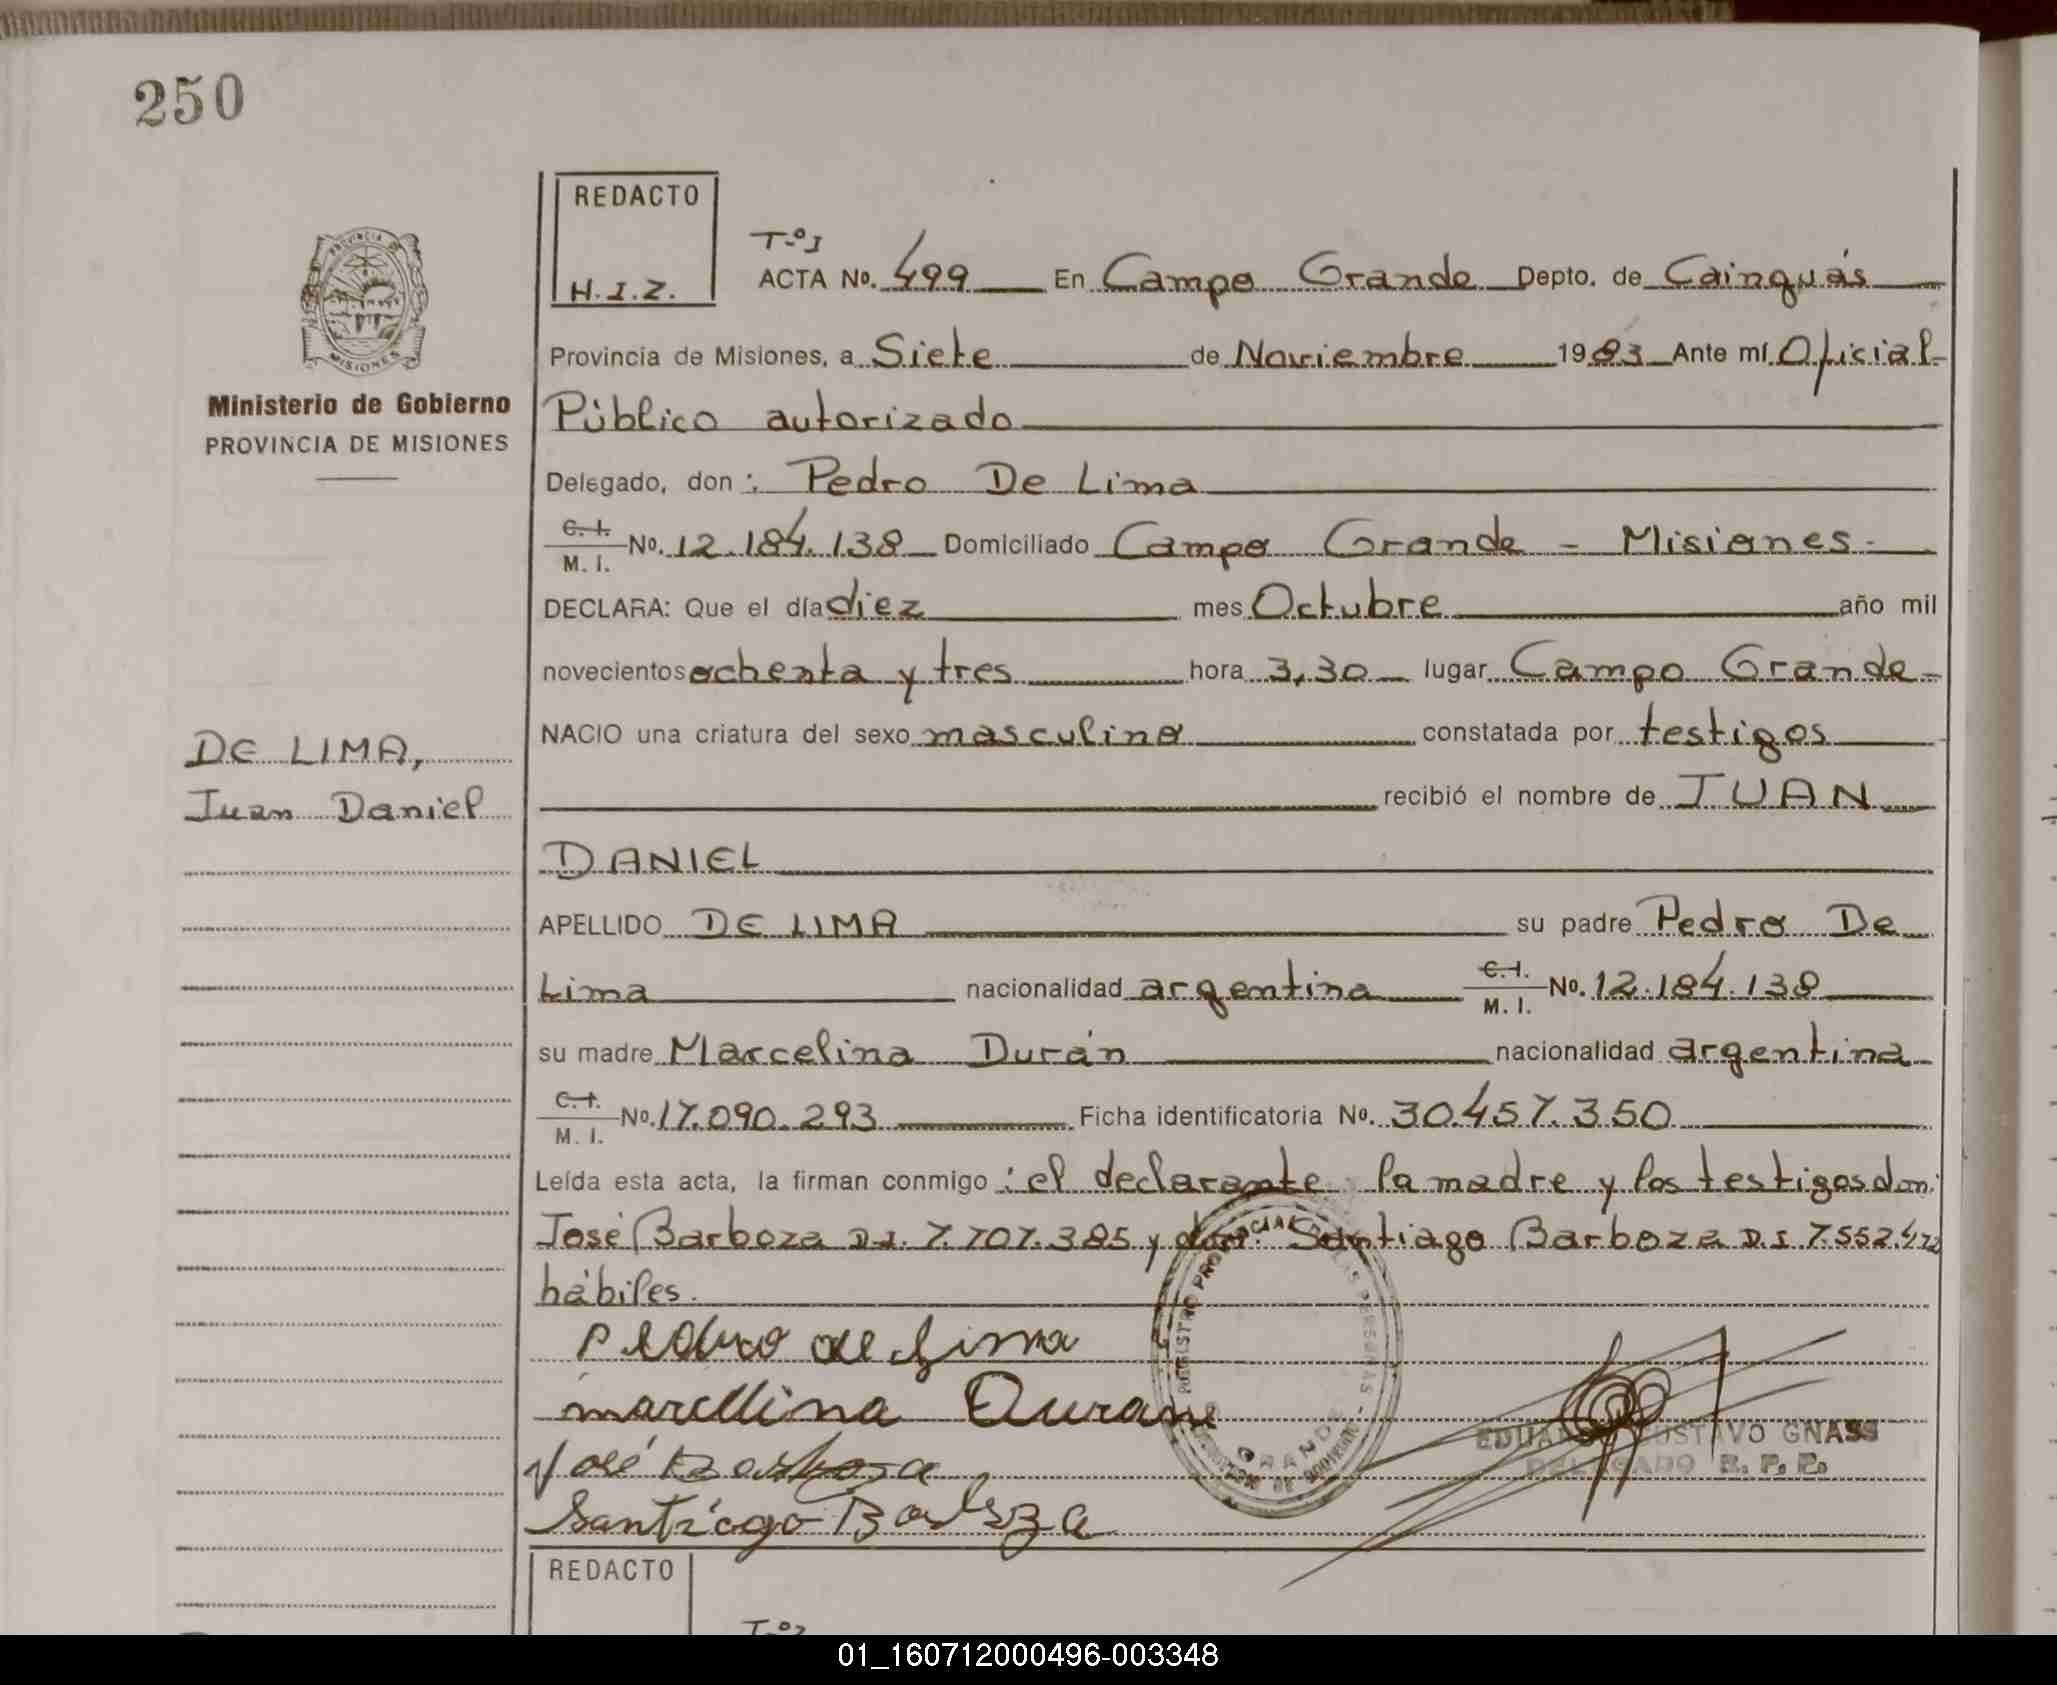 250
REDACTO
H.I.Z.
PROVINCIA DE
MISIONES
Ministerio de Gobierno
PROVINCIA DE MISIONES
T-º1
ACTA No. 499 En Campo Grande Depto. de Cainguás
Provincia de Misiones, a Siete de Noviembre 1983 Ante mí Oficial
Público autorizado
Delegado, don: Pedro De Lima
C. I. / M. I. No. 12.184.138 Domiciliado Campo Grande - Misiones.-
DECLARA: Que el día diez mes Octubre año mil
novecientos ochenta y tres hora 3,30 lugar Campo Grande-
NACIO una criatura del sexo masculino constatada por testigos
recibió el nombre de JUAN
DANIEL
DE LIMA,
Juan Daniel
APELLIDO DE LIMA su padre Pedro De
Lima nacionalidad argentina C. I. / M. I. No. 12.184.138
su madre Marcelina Durán nacionalidad argentina
C. I. / M. I. No. 17.090.293 Ficha identificatoria No. 30.457.350
Leída esta acta, la firman conmigo: el declarante, la madre y los testigos don:
José Barboza D.I. 7.707.385 y don: Santiago Barboza D.I. 7.552.472
hábiles.
Pedro de Lima
marcelina Duran
José Barboza
Santiago Barboza
EDUARDO GUSTAVO GNASS
DELEGADO R. P. P.
REDACTO
01_160712000496-003348